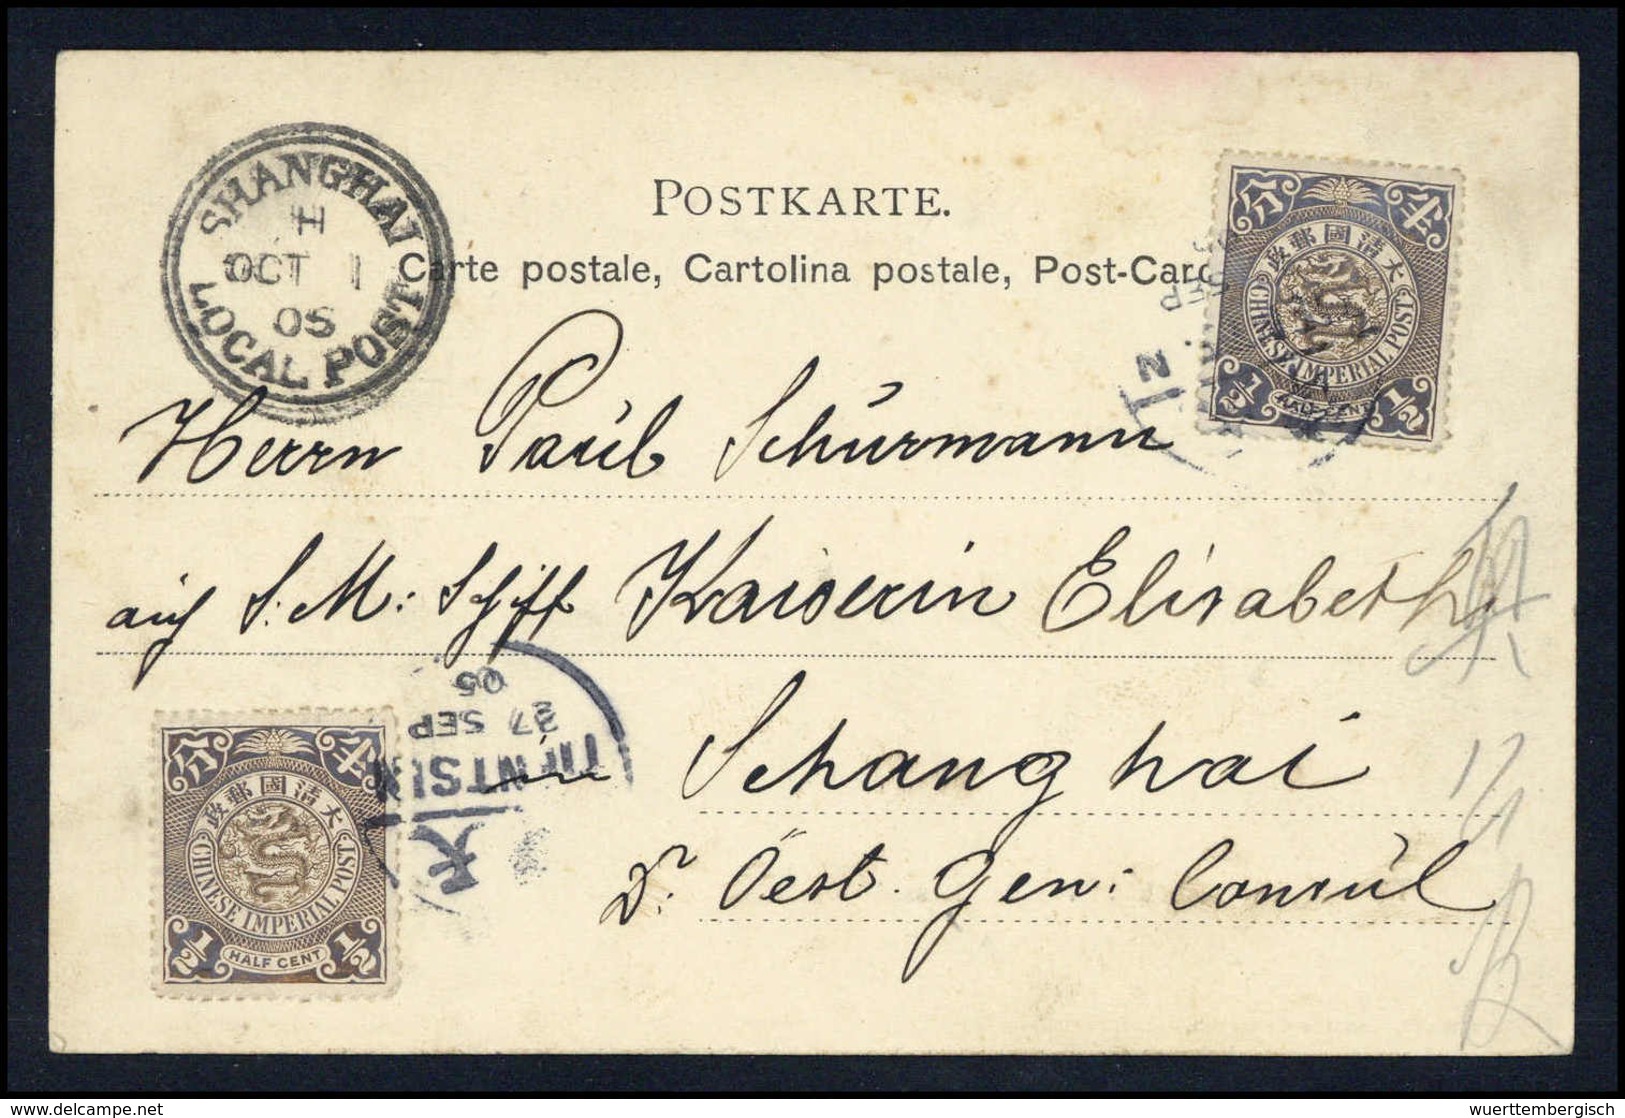 POSTKARTE.
Carte postale, Cartolina postale, Post-Card
SHANGHAI
H
OCT 1
05
LOCAL POST
分 半
大清國郵政
CHINESE IMPERIAL POST
1/2 HALF CENT 1/2
SEP
Herrn Paul Schürmann
auf S. M: Schiff Kaiserin Elisabeth
in Schanghai
Dr. Öest. Gen: Consul
TIENTSIN
27 SEP
05
分 半
大清國郵政
CHINESE IMPERIAL POST
1/2 HALF CENT 1/2
delcampe.net
wuerttembergisch